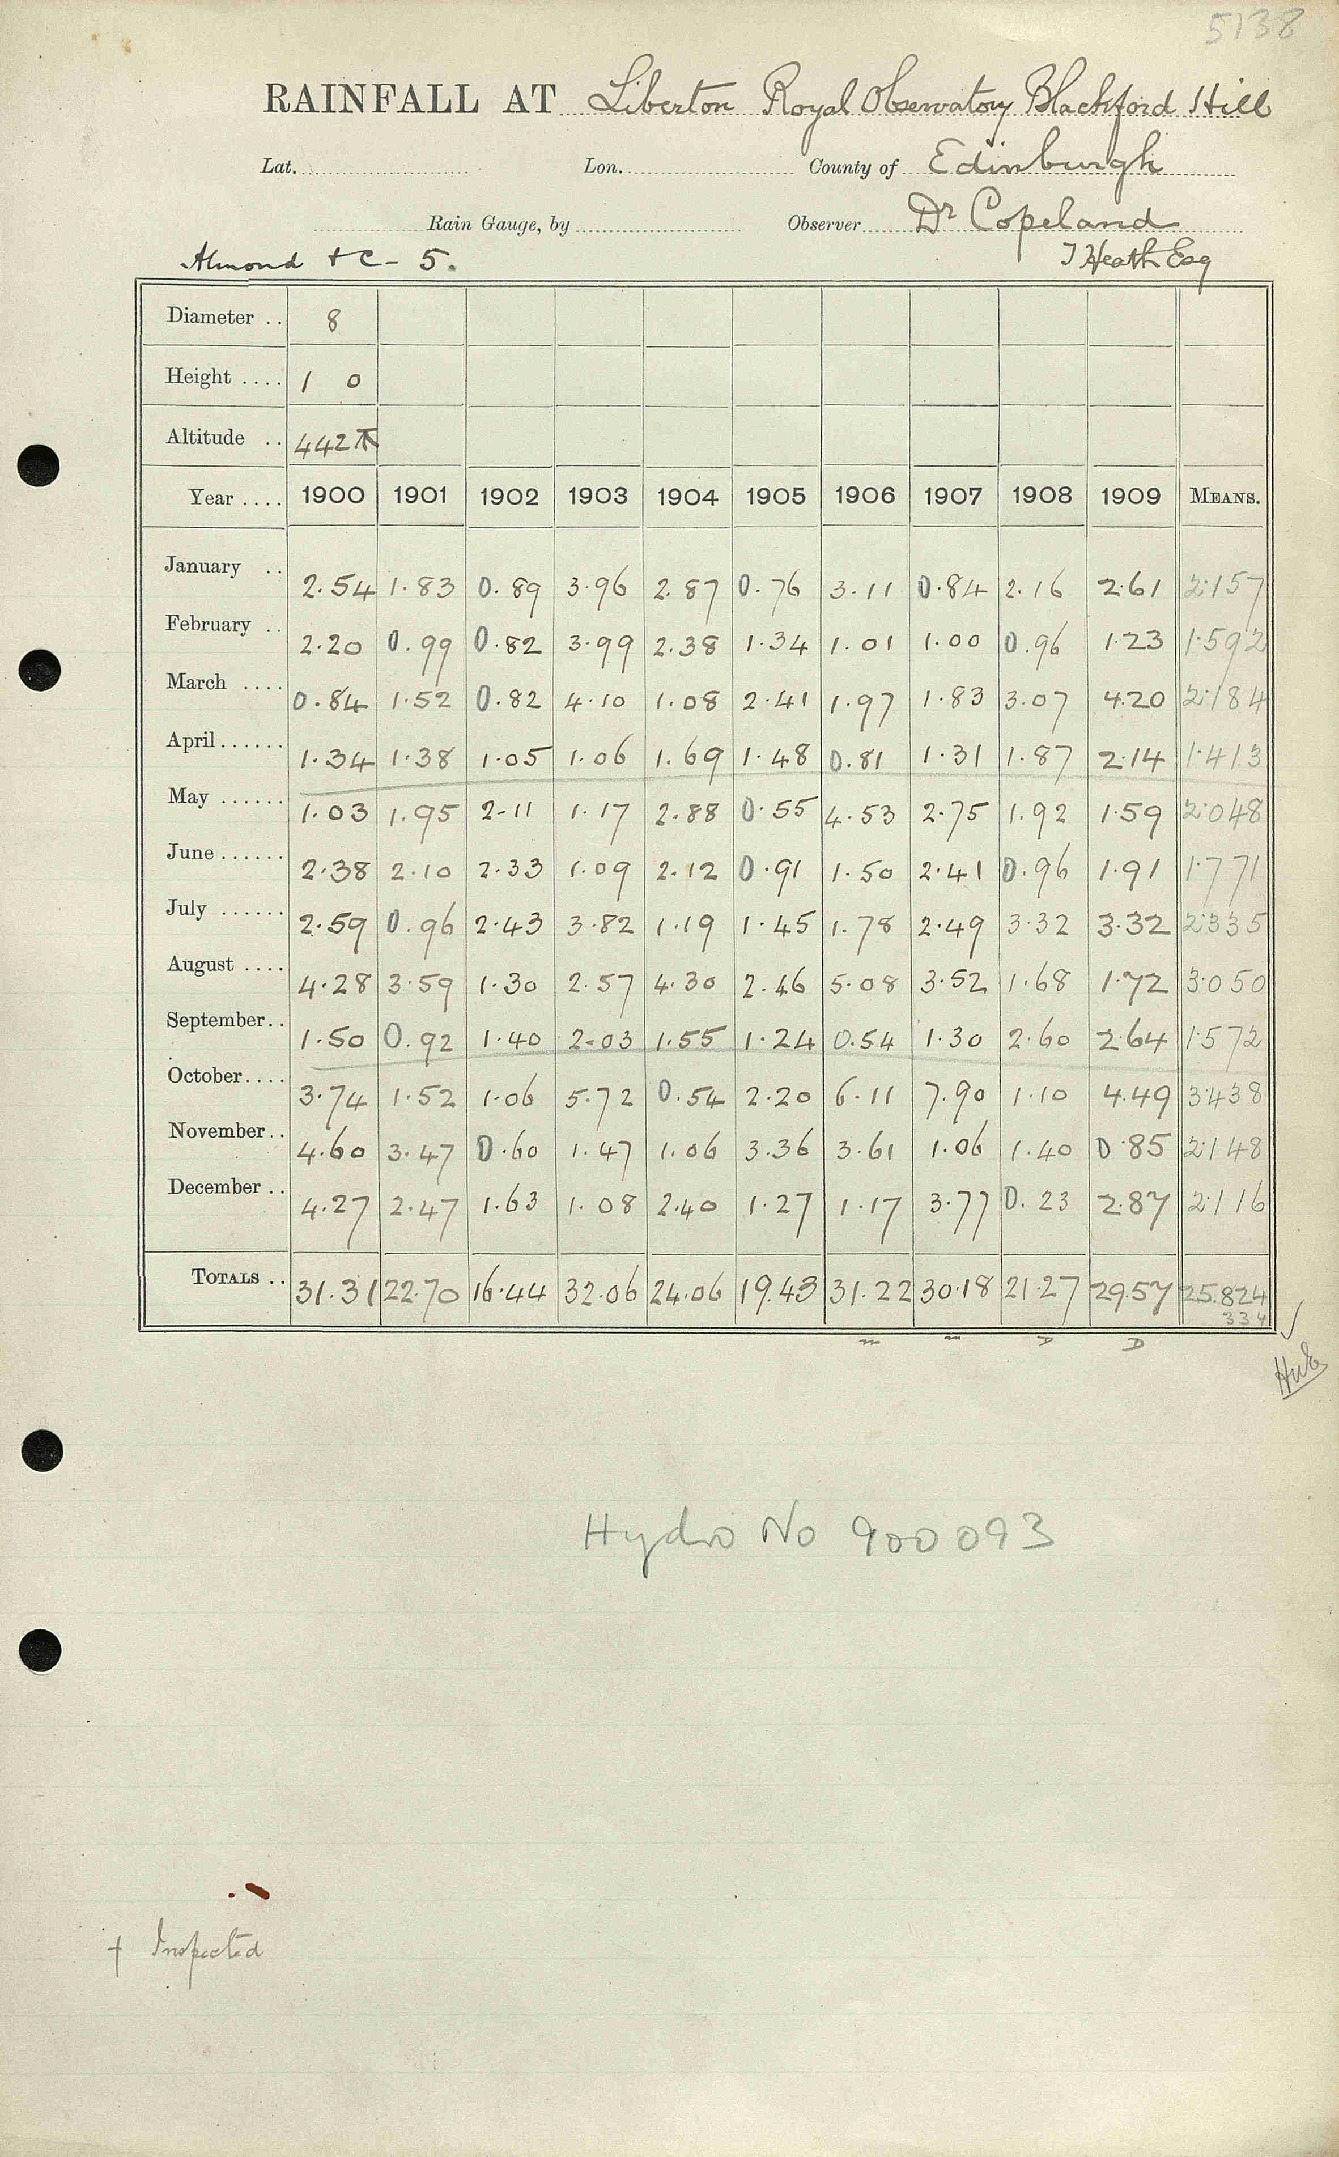 5138
RAINFALL AT Liberton Royal Observatory Blackford Hill
Lat. Lon. County of Edinburgh
Rain Gauge, by Observer Dr Copeland
Almond + C - 5. T Heath Esq
Diameter .. 8
Height .... 1 0
Altitude .. 442
Year .... 1900 1901 1902 1903 1904 1905 1906 1907 1908 1909 MEANS.
January .. 2.54 1.83 0.89 3.96 2.87 0.76 3.11 0.84 2.16 2.61 2.157
February .. 2.20 0.99 0.82 3.99 2.38 1.34 1.01 1.00 0.96 1.23 1.592
March .... 0.84 1.52 0.82 4.10 1.08 2.41 1.97 1.83 3.07 4.20 2.184
April...... 1.34 1.38 1.05 1.06 1.69 1.48 0.81 1.31 1.87 2.14 1.413
May ...... 1.03 1.95 2.11 1.17 2.88 0.55 4.53 2.75 1.92 1.59 2.048
June...... 2.38 2.10 2.33 1.09 2.12 0.91 1.50 2.41 0.96 1.91 1.771
July ...... 2.59 0.96 2.43 3.82 1.19 1.45 1.78 2.49 3.32 3.32 2.335
August .... 4.28 3.59 1.30 2.57 4.30 2.46 5.08 3.52 1.68 1.72 3.050
September.. 1.50 0.92 1.40 2.03 1.55 1.24 0.54 1.30 2.60 2.64 1.572
October.... 3.74 1.52 1.06 5.72 0.54 2.20 6.11 7.90 1.10 4.49 3.438
November.. 4.60 3.47 0.60 1.47 1.06 3.36 3.61 1.06 1.40 0.85 2.148
December .. 4.27 2.47 1.63 1.08 2.40 1.27 1.17 3.77 0.23 2.87 2.116
TOTALS .. 31.31 22.70 16.44 32.06 24.06 19.43 31.22 30.18 21.27 29.57 25.824
334
m m D D
Hydro No 900093
+ Inspected